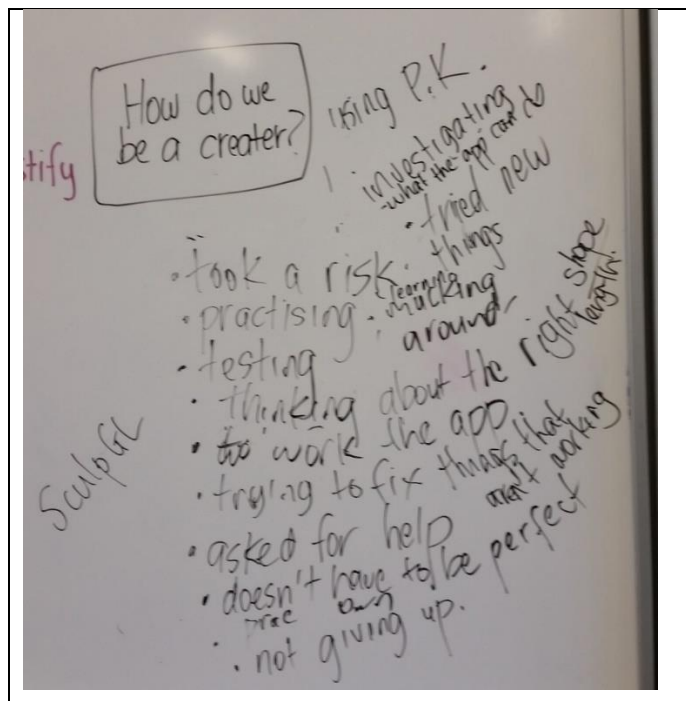 How do we
be a creater?
tify
using P.K.
investigating
-what the app can do
• tried new
things
• took a risk.
• practising
• learning
mucking
around
• testing
• thinking about the right shape
length.
• work the app
• trying to fix things that
aren't working
SculpGL
• asked for help
• doesn't have to be perfect
own
• not giving up.